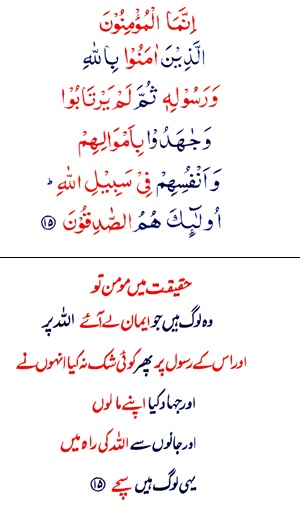 اِنَّمَا الْمُؤْمِنُوْنَ
الَّذِيْنَ اٰمَنُوْا بِاللّٰهِ
وَرَسُوْلِهٖ ثُمَّ لَمْ يَرْتَابُوْا
وَجٰهَدُوْا بِاَمْوَالِهِمْ
وَاَنْفُسِهِمْ فِيْ سَبِيْلِ اللّٰهِ ؕ
اُولٰٓئِكَ هُمُ الصّٰدِقُوْنَ ﴿۱۵﴾
حقیقت میں مومن تو
وہ لوگ ہیں جو ایمان لے آئے اللہ پر
اور اس کے رسول پر پھر کوئی شک نہ کیا انہوں نے
اور جہاد کیا اپنے مالوں
اور جانوں سے اللہ کی راہ میں
یہی لوگ ہیں سچے ﴿۱۵﴾